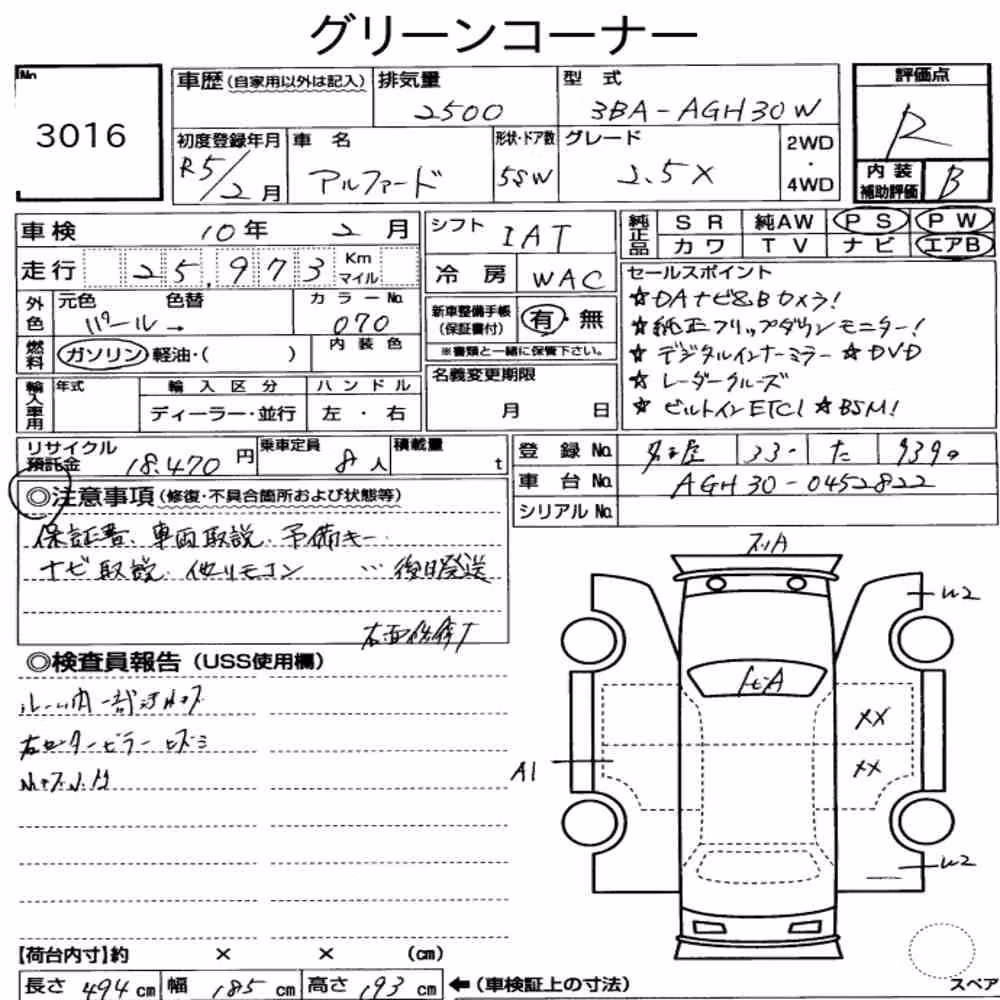 グリーンコーナー
No.
3016
車歴(自家用以外は記入)
排気量
2500
型 式
3BA-AGH30W
評価点
R
初度登録年月
R5/2月
車 名
アルファード
形状・ドア数
5SW
グレード
2.5X
2WD
・
4WD
内 装
補助評価
B
車検 10年 2月
シフト
IAT
純正品
SR 純AW PS PW
カワ TV ナビ エアB
走行 25,973 Km マイル
冷 房
WAC
セールスポイント
☆DAナビ&Bカメラ!
☆純正フリップダウンモニター!
☆デジタルインナーミラー ☆DVD
☆レーダークルーズ
☆ビルトインETC! ☆BSM!
外色
元色 色替
パール→
カラーNo.
070
新車整備手帳
(保証書付)
有・無
※書類と一緒に保管下さい。
燃料
ガソリン・軽油・( )
内 装 色
名義変更期限
月 日
輸入車用
年式
輸 入 区 分
ディーラー・並行
ハ ン ド ル
左 ・ 右
リサイクル
預託金
18,470円
乗車定員
8人
積載量
t
登 録 No.
名古屋 33・ た 939
車 台 No.
AGH30-0452822
シリアル No.
◎注意事項(修復・不具合箇所および状態等)
保証書、車両取説、予備キー
ナビ取説、他リモコン …後日発送
◎検査員報告(USS使用欄)
右センターピラーヒズミ
スリA
W2
トビA
XX
XX
A1
W2
スペア
【荷台内寸】約 × × (cm)
長さ 494cm 幅 185cm 高さ 193cm
←(車検証上の寸法)